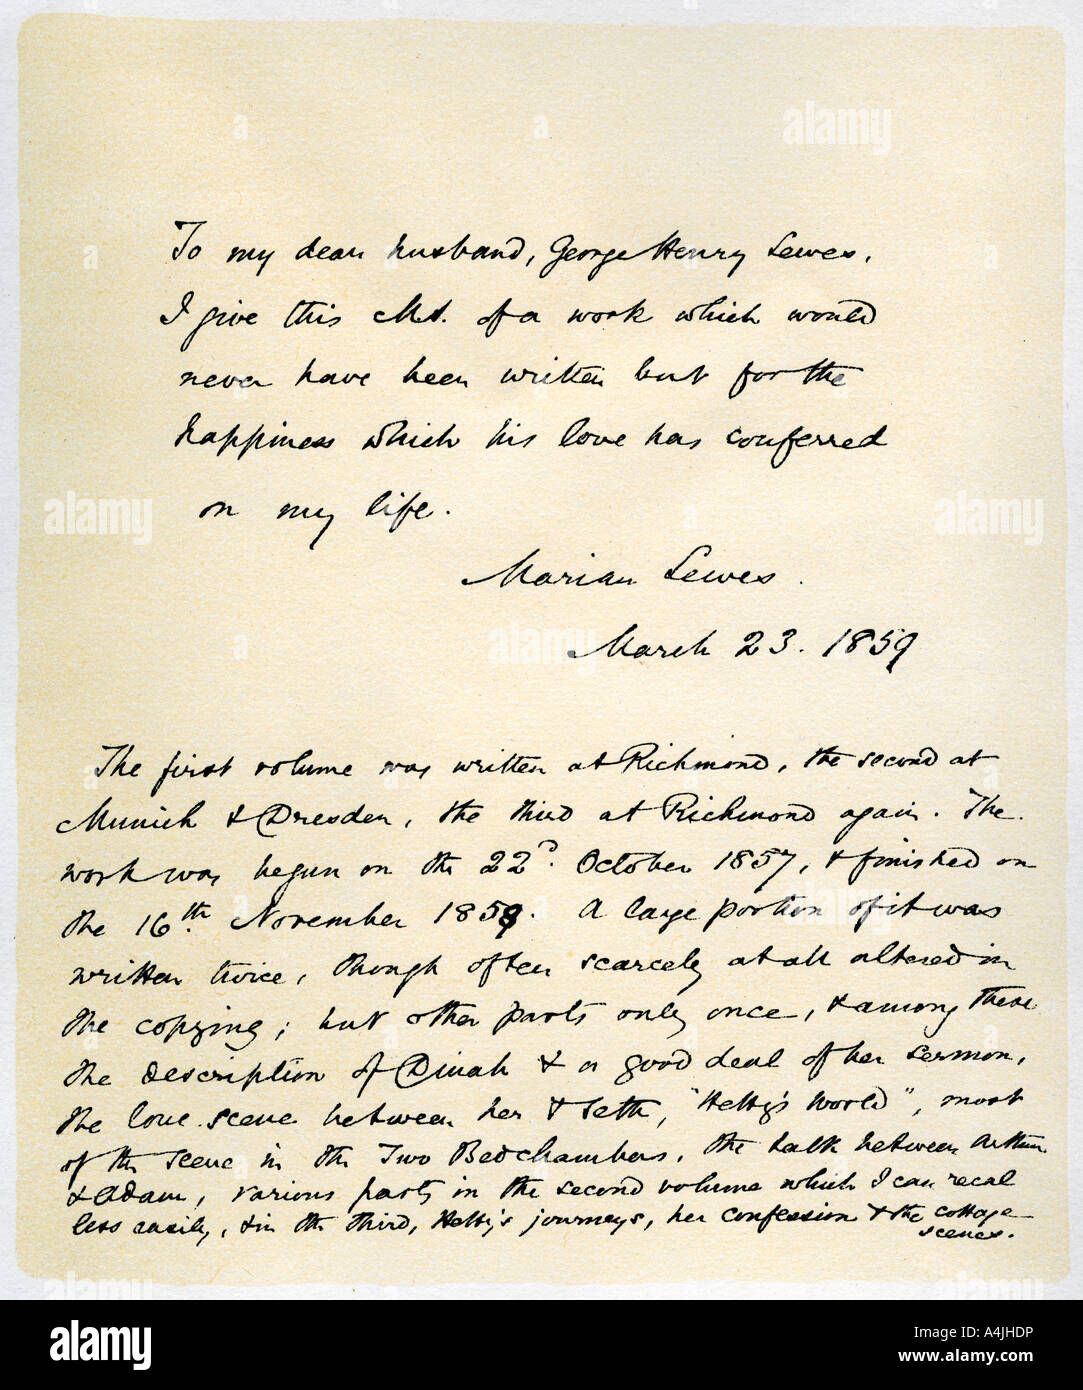 To my dear husband, George Henry Lewes,
I give this M.S. of a work which would
never have been written but for the
happiness which his love has conferred
on my life.
Marian Lewes.
March 23. 1859
The first volume was written at Richmond, the second at
Munich & Dresden, the third at Richmond again. The
work was begun on the 22d. October 1857, & finished on
the 16th. November 1858. A large portion of it was
written twice, though often scarcely at all altered in
the copying; but other parts only once, & among these
the description of Dinah & a good deal of her sermon,
the love scene between her & Seth, "Hetty's World", most
of the scene in the Two Bedchambers, the talk between Arthur
& Adam, various parts in the second volume which I can recal
less easily, & in the third, Hetty's journeys, her confession & the cottage
scenes.
alamy
Image ID: A4JHDP
www.alamy.com